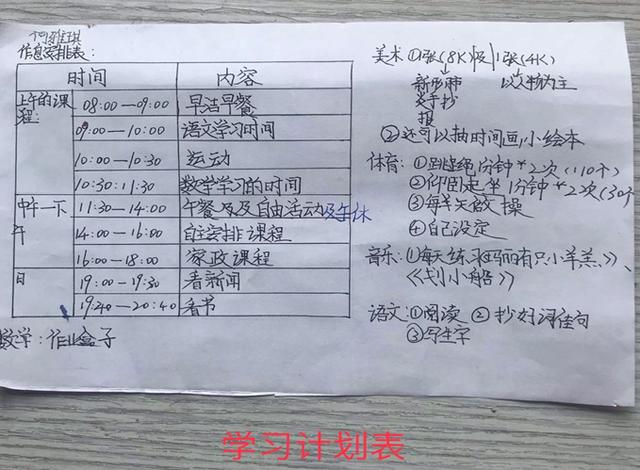 何雅琪
作息安排表:
时间 内容
上午的课程: 08:00—09:00 早洁早餐
09:00—10:00 语文学习时间
10:00—10:30 运动
10:30:11:30 数学学习的时间
中午一下午 11:30—14:00 午餐及自由活动及午休
14:00—16:00 自主安排课程
16:00—18:00 家政课程
日 19:00—19:30 看新闻
19:40—20:40 看书
数学: 作业盒子
美术 ①1张(8K)及1张(4K)
新形肺炎手抄报 以人物为主
②还可以抽时间画,小绘本
体育: ①跳绳1分钟*2次(110个)
②仰卧起坐1分钟*2次(30个
③每天做操
④自己设定
音乐: ①每天练习《玛丽有只小羊羔》、
《划小船》
语文: ①阅读 ②抄好词佳句
③写生字
学习计划表